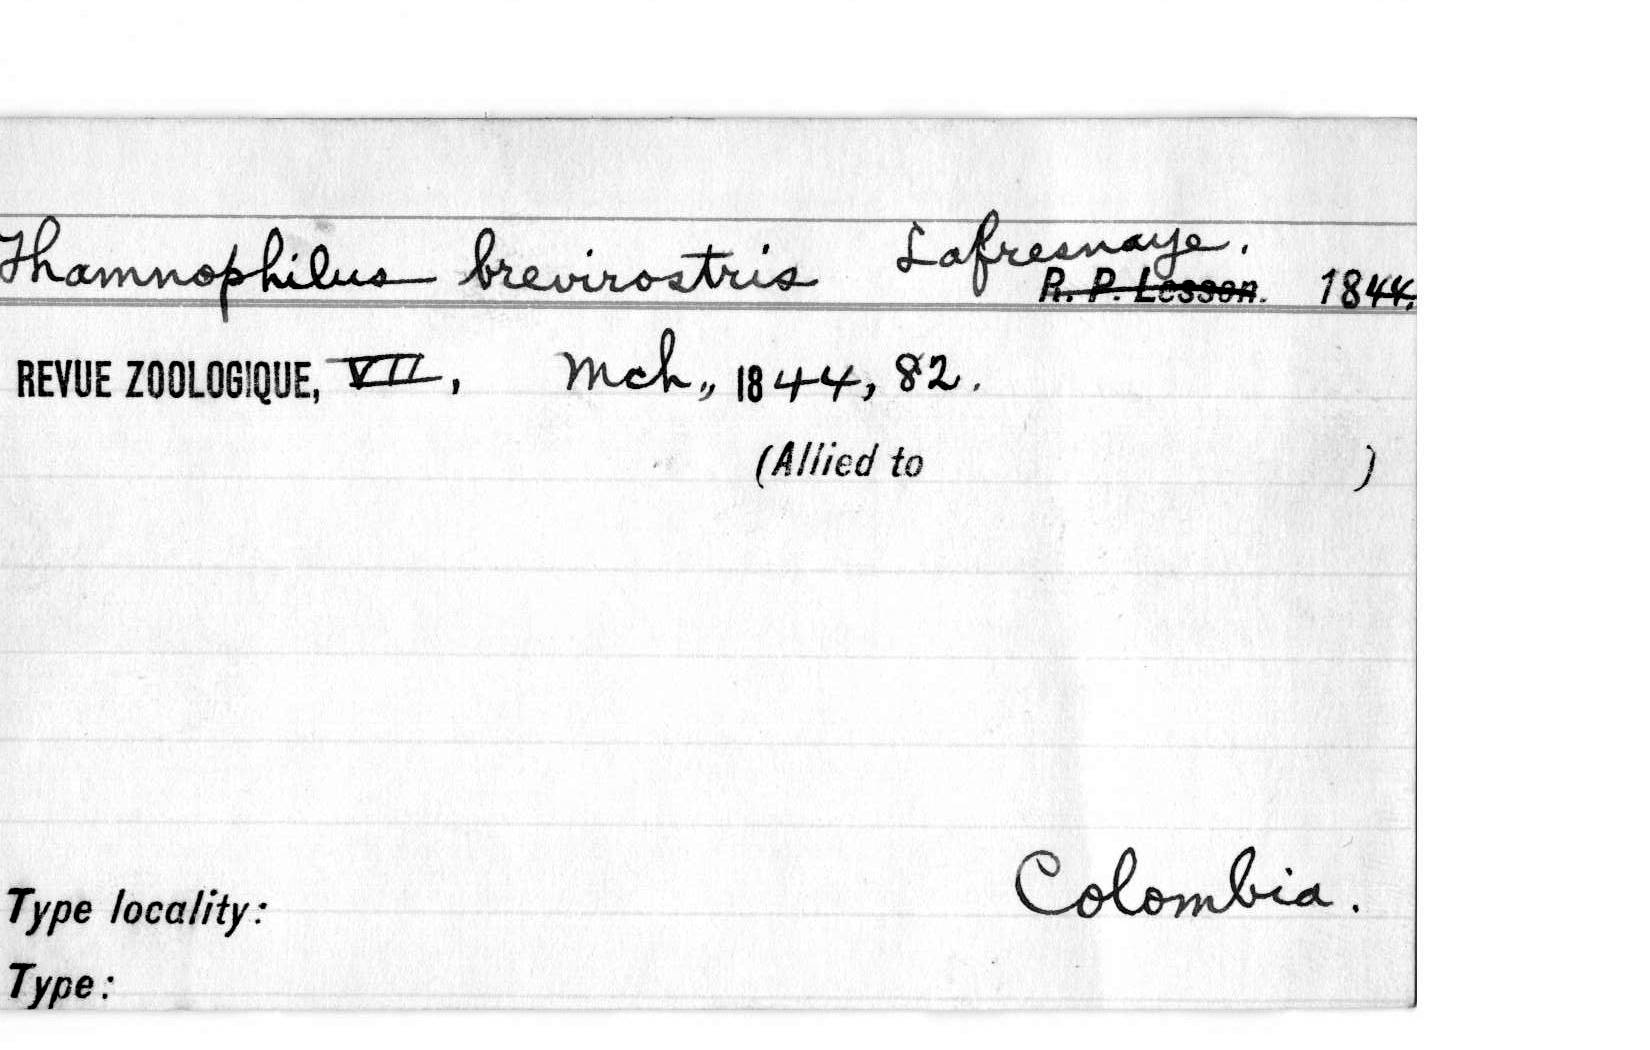 Thamnophilus brevirostris Lafresnaye.
R. P. Lesson. 1844.
REVUE ZOOLOGIQUE, VII, Mch., 1844, 82.
(Allied to )
Colombia.
Type locality:
Type: